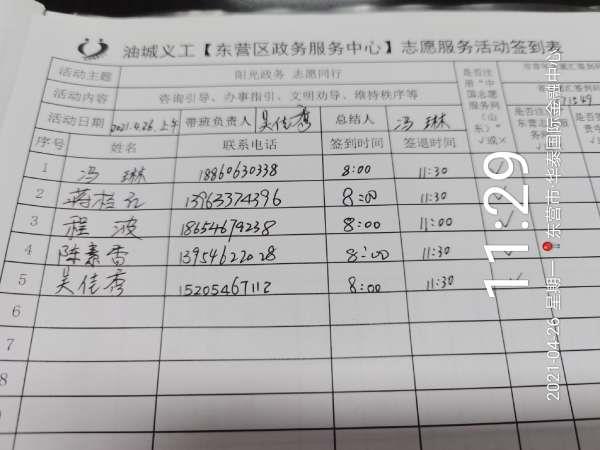 油城义工【东营区政务服务中心】志愿服务活动签到表
活动主题 阳光政务 志愿同行
活动内容 咨询引导、办事指引、文明劝导、维持秩序等
活动日期 2021.4.26.上午 带班负责人 吴佳秀 总结人 冯琳
是否注册“中国志愿服务网（山东）”√或×
序号 姓名 联系电话 签到时间 签退时间
1 冯琳 18860630338 8:00 11:30
2 蒋桂红 13963374396 8:00 11:30 √
3 程波 18654679238 8:00 11:00 √
4 陈素香 13954622028 8:00 11:30
5 吴佳秀 15205467112 8:00 11:30 √
6
7
8
9
11:29
2021-04-26 星期一 东营市·华泰国际金融中心